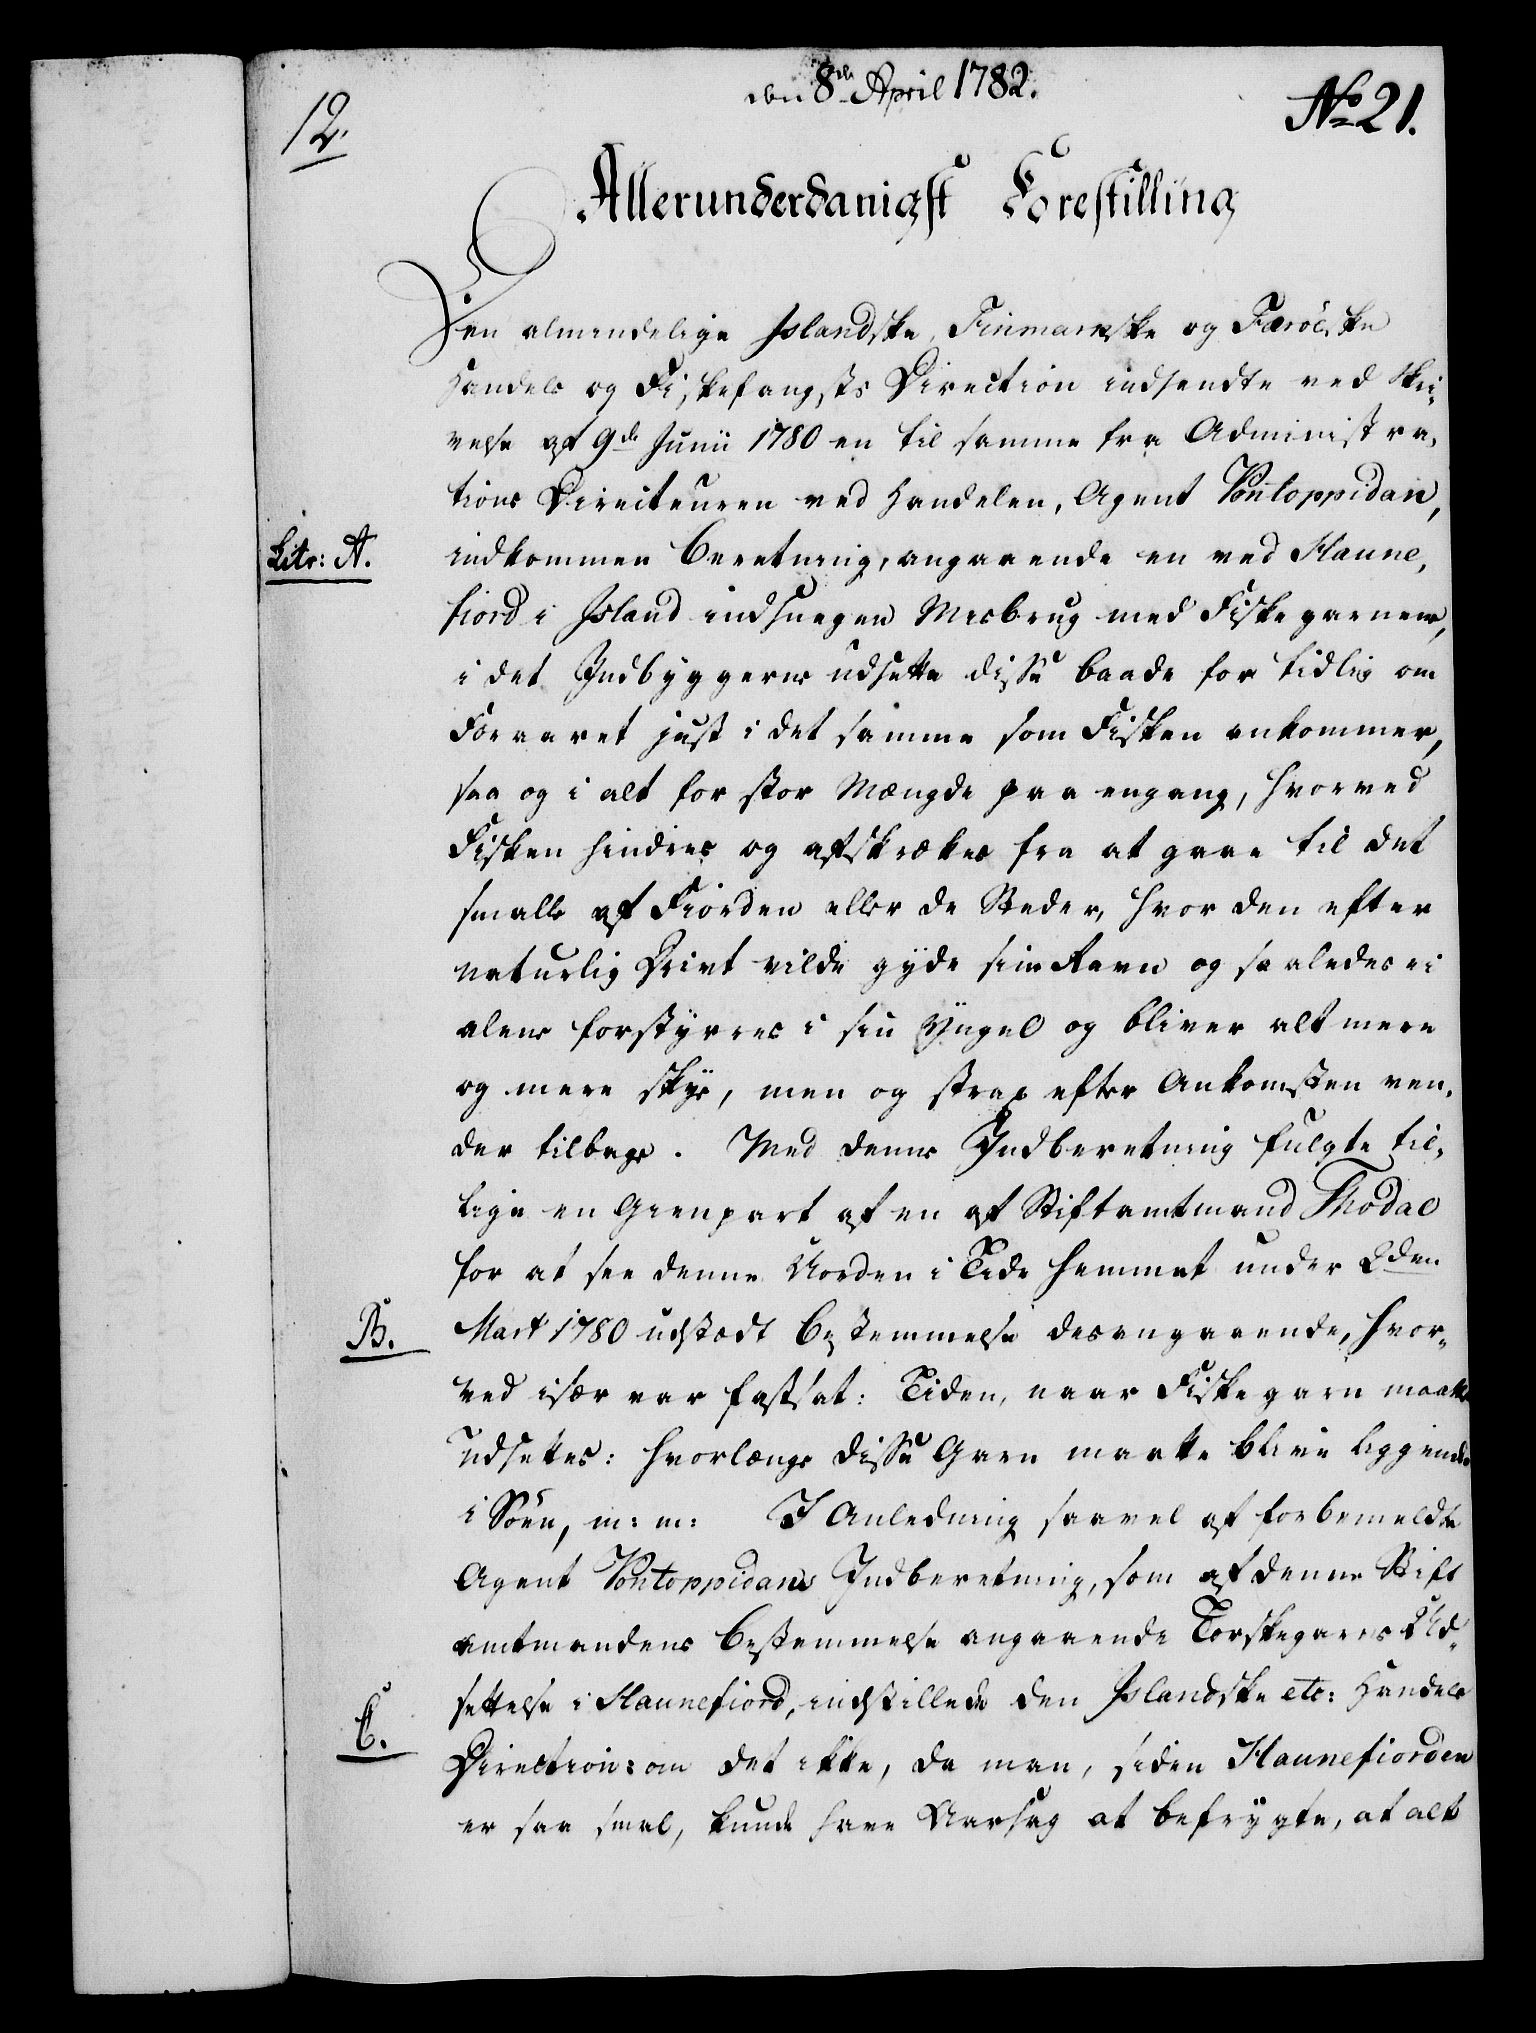 den 8de April 1782.
12.
No 21.
Allerunderdanigst Forestilling
Den almindelige Islandske, Finmarkske og Færöeske
Handels og Fiskefangsts Direction indsendte ved Skri-
velse af 9de Junii 1780 en til samme fra Administra-
tions Directeuren ved Handelen, Agent Pontoppidan,
Litr: A.
indkommen Beretning, angaaende en ved Havne-
fiord i Island indsnegen Misbrug med Fiskegarnene,
i det Indbyggerne udsette disse baade for tidlig om
Foraaret just i det samme som Fisken ankommer,
saa og i alt for stor Mængde paa engang, hvorved
Fisken hindres og afskrækkes fra at gaae til det
smalle af Fiorden eller de Steder, hvor den efter
naturlig Drivt vilde gyde sin Ravn og saaledes ei
alene forstyrres i sin Yngel og bliver alt mere
og mere skye, men og strax efter Ankomsten ven-
der tilbage. Med denne Indberetning fulgte til-
lige en Gienpart af en af Stiftamtmand Thodal
for at see denne Uorden i Tide hemmet under 2den
B.
Mart 1780 udstædt Bestemmelse desangaaende, hvor-
ved især var fastsat: Tiden, naar Fiskegarn maatte
udsettes: hvorlænge disse Garn maatte blive liggende
i Söen, m: m: I Anledning saavel af forbemeldte
Agent Pontoppidans Indberetning, som af denne Stift
amtmandens Bestemmelse angaaende Torskegarns Ud-
settelse i Havnefiord, indstillede den Islandske etc: Handels
C.
Direction: om det ikke, da man, siden Havnefiorden
er saa smal, kunde have Aarsag at befrygte, at alt